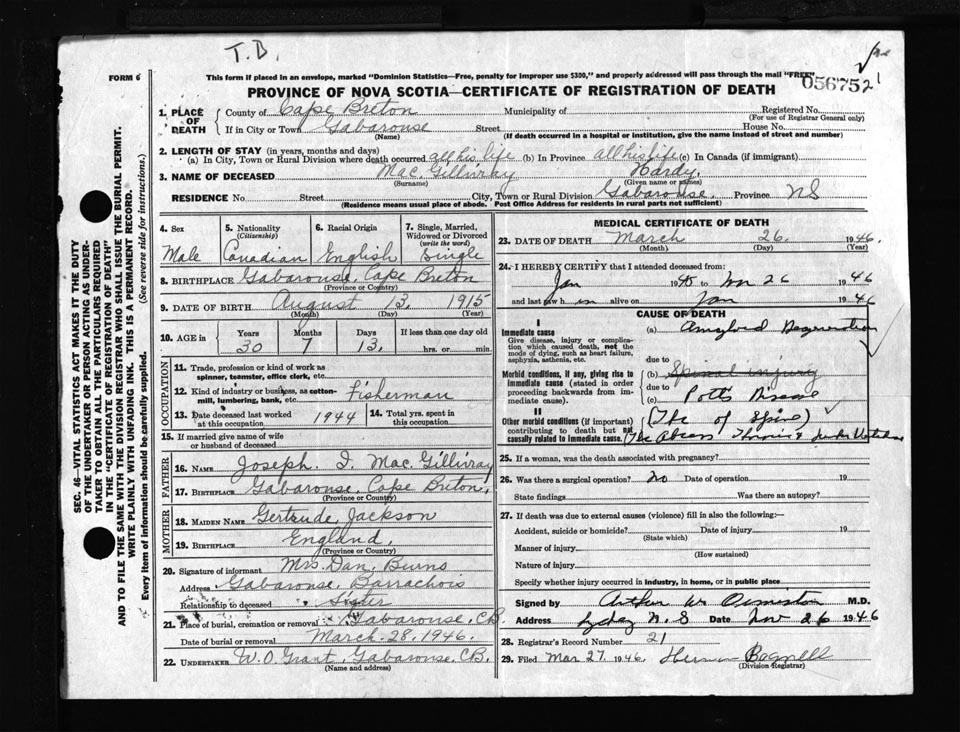 T.B.
FORM 6
This form if placed in an envelope, marked "Dominion Statistics—Free, penalty for improper use $300," and properly addressed will pass through the mail "FREE"
056752
PROVINCE OF NOVA SCOTIA—CERTIFICATE OF REGISTRATION OF DEATH
1. PLACE OF DEATH
County of Cape Breton Municipality of Registered No.
(For use of Registrar General only)
If in City or Town Gabarouse Street House No.
(Name) (If death occurred in a hospital or institution, give the name instead of street and number)
2. LENGTH OF STAY (in years, months and days)
(a) In City, Town or Rural Division where death occurred all his life (b) In Province all his life (c) In Canada (if immigrant)
3. NAME OF DECEASED Mac Gillivray Hardy.
(Surname) (Given name or names)
RESIDENCE No. Street City, Town or Rural Division Gabarouse, Province NS
(Residence means usual place of abode. Post Office Address for residents in rural parts not sufficient)
4. Sex Male
5. Nationality (Citizenship) Canadian
6. Racial Origin English
7. Single, Married, Widowed or Divorced (write the word) Single
8. BIRTHPLACE Gabarouse, Cape Breton
(Province or Country)
9. DATE OF BIRTH August 13, 1915
(Month) (Day) (Year)
10. AGE in Years Months Days If less than one day old
30 7 13. hrs. or min.
OCCUPATION
11. Trade, profession or kind of work as spinner, teamster, office clerk, etc.
12. Kind of industry or business, as cotton-mill, lumbering, bank, etc. Fisherman
13. Date deceased last worked at this occupation 1944
14. Total yrs. spent in this occupation
15. If married give name of wife or husband of deceased
FATHER
16. NAME Joseph. I. Mac. Gillivray
17. BIRTHPLACE Gabarouse, Cape Breton,
(Province or Country)
MOTHER
18. MAIDEN NAME Gertrude, Jackson
19. BIRTHPLACE England,
(Province or Country)
20. Signature of informant Mrs. Dan, Burns
Address Gabarouse, Barrachois
Relationship to deceased Sister
21. Place of burial, cremation or removal Gabarouse, C.B.
Date of burial or removal March. 28, 1946.
22. UNDERTAKER W.O. Grant, Gabarouse. C.B.
(Name and address)
MEDICAL CERTIFICATE OF DEATH
23. DATE OF DEATH March 26. 1946.
(Month) (Day) (Year)
24. I HEREBY CERTIFY that I attended deceased from:
Jan 1945 to 26 1946
and last saw him alive on Jan 1946
CAUSE OF DEATH
I
Immediate cause
Give disease, injury or complication which caused death, not the mode of dying, such as heart failure, asphyxia, asthenia, etc.
(a) Amyloid Degeneration
due to
Morbid conditions, if any, giving rise to immediate cause (stated in order proceeding backwards from immediate cause).
(b) Spinal injury
due to
(c) Potts Disease
II
Other morbid conditions (if important) contributing to death but not causally related to immediate cause.
(Tbc of Spine)
(Tbc Abcess
25. If a woman, was the death associated with pregnancy?
26. Was there a surgical operation? no Date of operation 19
State findings Was there an autopsy?
27. If death was due to external causes (violence) fill in also the following:—
Accident, suicide or homicide? Date of injury 19
(State which)
Manner of injury
(How sustained)
Nature of injury
Specify whether injury occurred in industry, in home, or in public place
Signed by Arthur W Ormiston M.D.
Address Sydney N.S Date 26 1946
28. Registrar's Record Number 21
29. Filed Mar 27. 1946. Herman Bagnell
(Division Registrar)
SEC. 46—VITAL STATISTICS ACT MAKES IT THE DUTY
OF THE UNDERTAKER OR PERSON ACTING AS UNDER-
TAKER TO OBTAIN ALL THE PARTICULARS REQUIRED
IN THE "CERTIFICATE OF REGISTRATION OF DEATH"
AND TO FILE THE SAME WITH THE DIVISION REGISTRAR WHO SHALL ISSUE THE BURIAL PERMIT.
WRITE PLAINLY WITH UNFADING INK. THIS IS A PERMANENT RECORD.
Every item of information should be carefully supplied. (See reverse side for instructions.)